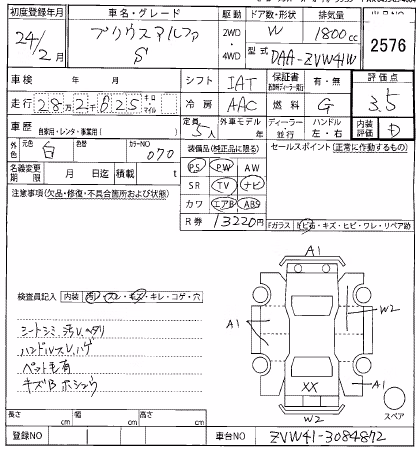 初度登録年月 車名・グレード 駆動 ドア数・形状 排気量
24/2月 プリウスアルファ 2WD・4WD W 1800cc 2576
S 型式 DAA-ZVW41W
車検 年 月 シフト IAT 保証書 有・無 評価点
走行 28万2千625 キロ・マイル 冷房 AAC 燃料 G 3.5
車歴 自家用・レンタ・事業用( ) 定員 5人 外車モデル 年 ディーラー 並行 ハンドル 左・右 内装評価 D
外色 元色 白 色替 カラーNO 070 装備品(純正品に限る) セールスポイント(正常に作動するもの)
名義変更期限 月 日迄 積載 t PS PW AW
注意事項(欠品・修復・不具合箇所および状態) SR TV ナビ
カワ エアB ABS
R券 13220円 Fガラス 飛石・キズ・ヒビ・ワレ・リペア跡
A1
A1
W2
検査員記入 内装 汚れ・スレ・キズ・キレ・コゲ・穴
シートシミ汚レヘタリ
ハンドルスレハゲ
ペット毛有
キズBホシュウ
XX
A1
W2
スペア
長さ cm 幅 cm 高さ cm
登録NO 車台NO ZVW41-3084872